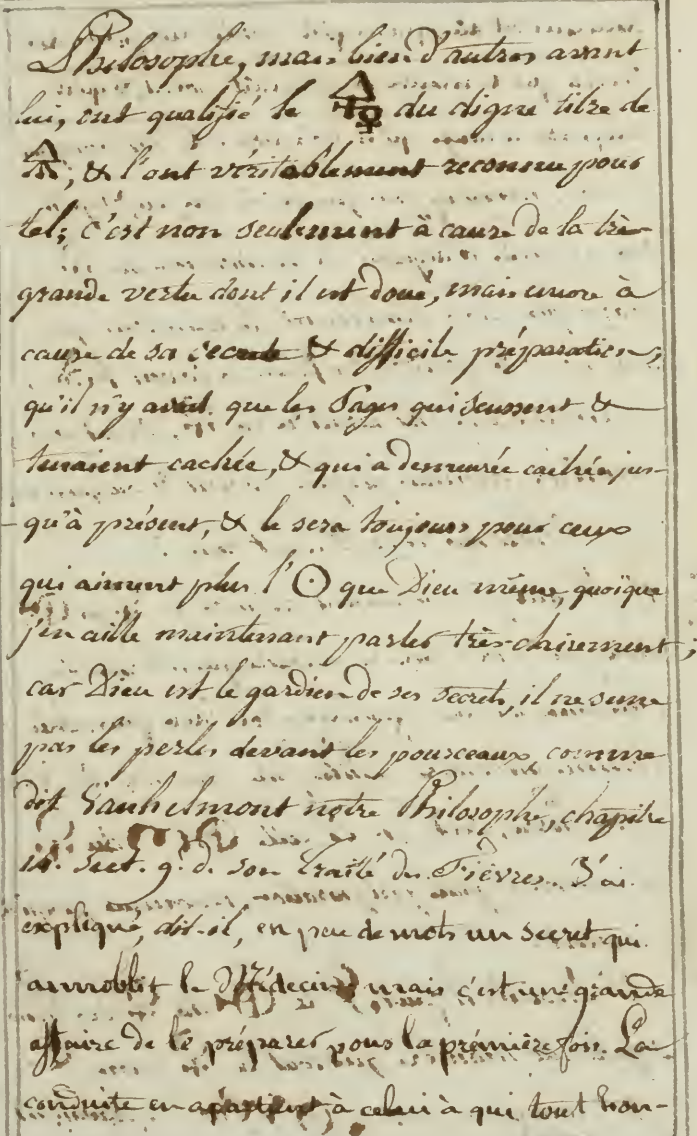 Philosophe, mais bien d'autres avant
lui, ont qualifié le 🜍♀ du digne titre de
🜍, & l'ont véritablement reconnu pour
tel; c'est non seulement à cause de la très
grande vertu dont il est doué, mais encore à
cause de sa secrete & difficile préparation;
qu'il n'y avait que les Sages qui seussent &
tenaient cachée, & qui a demeurée cachée jus-
qu'à présent, & le sera toujours pour ceux
qui aiment plus l'☉ que Dieu même, quoique
j'en aille maintenant parler très-clairement;
car Dieu est le gardien de ses secrets, il ne seme
pas les perles devant les pourceaux comme
dit Vanhelmont notre Philosophe, chapitre
14. sect. 9. d. son Traité des Fièvres. J'ai
expliqué, dit-il, en peu de mots un secret qui
annoblit le Médecin; mais c'est une grande
affaire de le préparer pour la prémière fois. La
conduite en apartient à celui à qui tout hon-